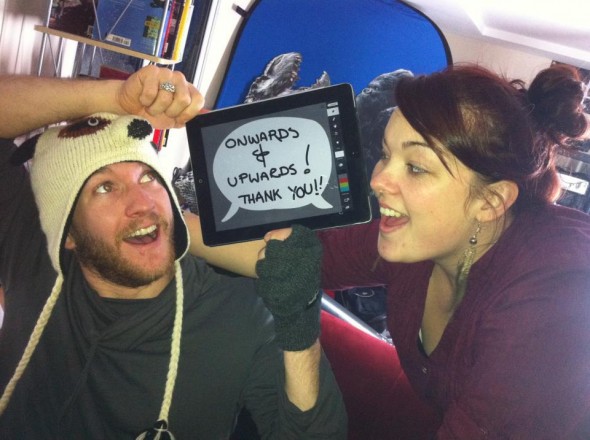 ONWARDS
&
UPWARDS!
THANK YOU!!